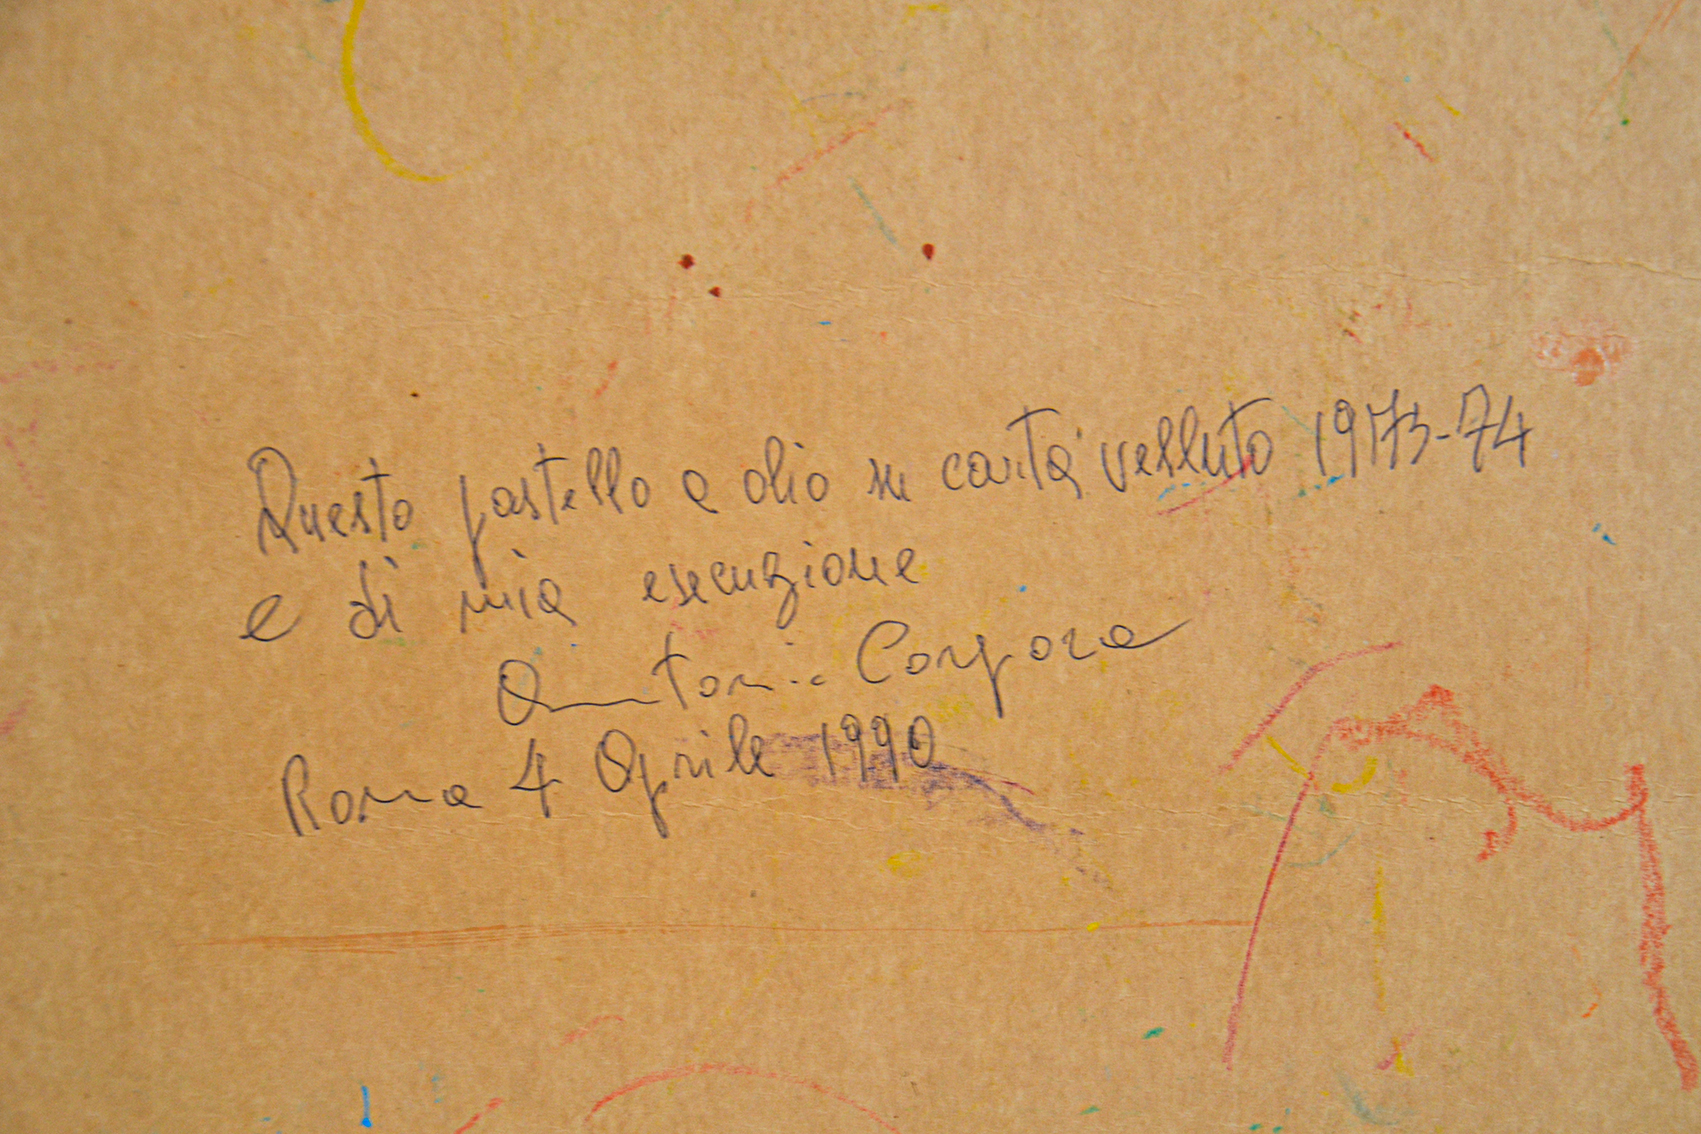 Questo pastello a olio su carta velluto 1973-74
e di mia esecuzione
Antonio Corpora
Roma 4 Aprile 1990